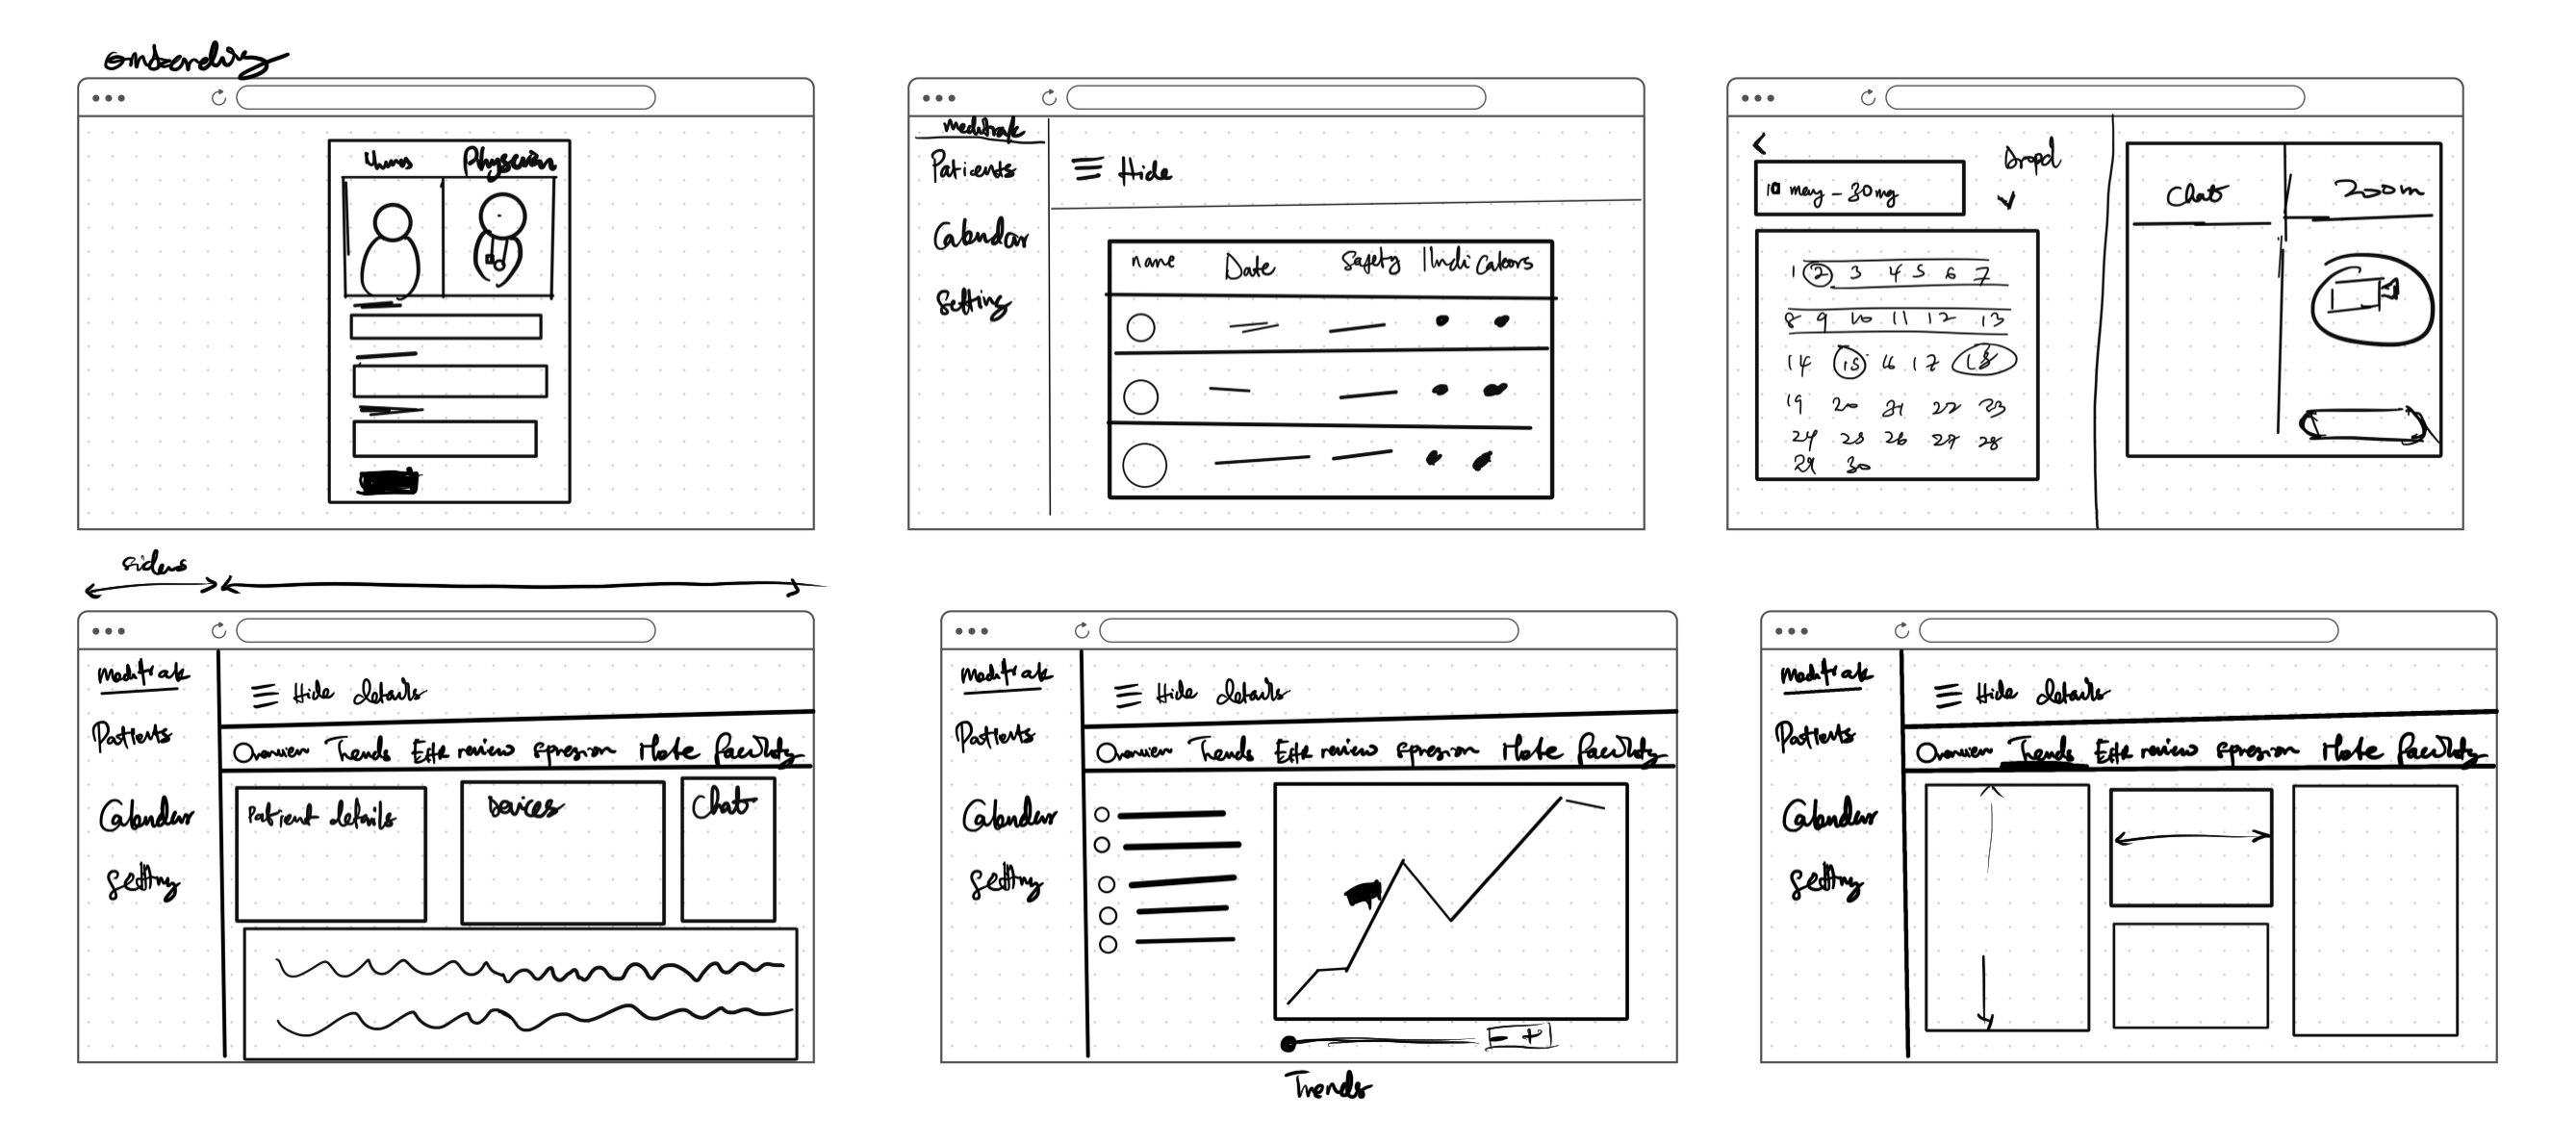 Physician
meditrak
Patients
Calendar
Setting
Hide
name Date Safety Indicators
Dropd
10 may - 30 mg
1 2 3 4 5 6 7
8 9 10 11 12 13
14 15 16 17 18
19 20 21 22 23
24 25 26 27 28
29 30
Chat Zoom
meditrak
Patients
Calendar
Setting
Hide details
Overview Trends review Note
Patient details
Devices
Chat
meditrak
Patients
Calendar
Setting
Hide details
Overview Trends review Note
Trends
meditrak
Patients
Calendar
Setting
Hide details
Overview Trends review Note